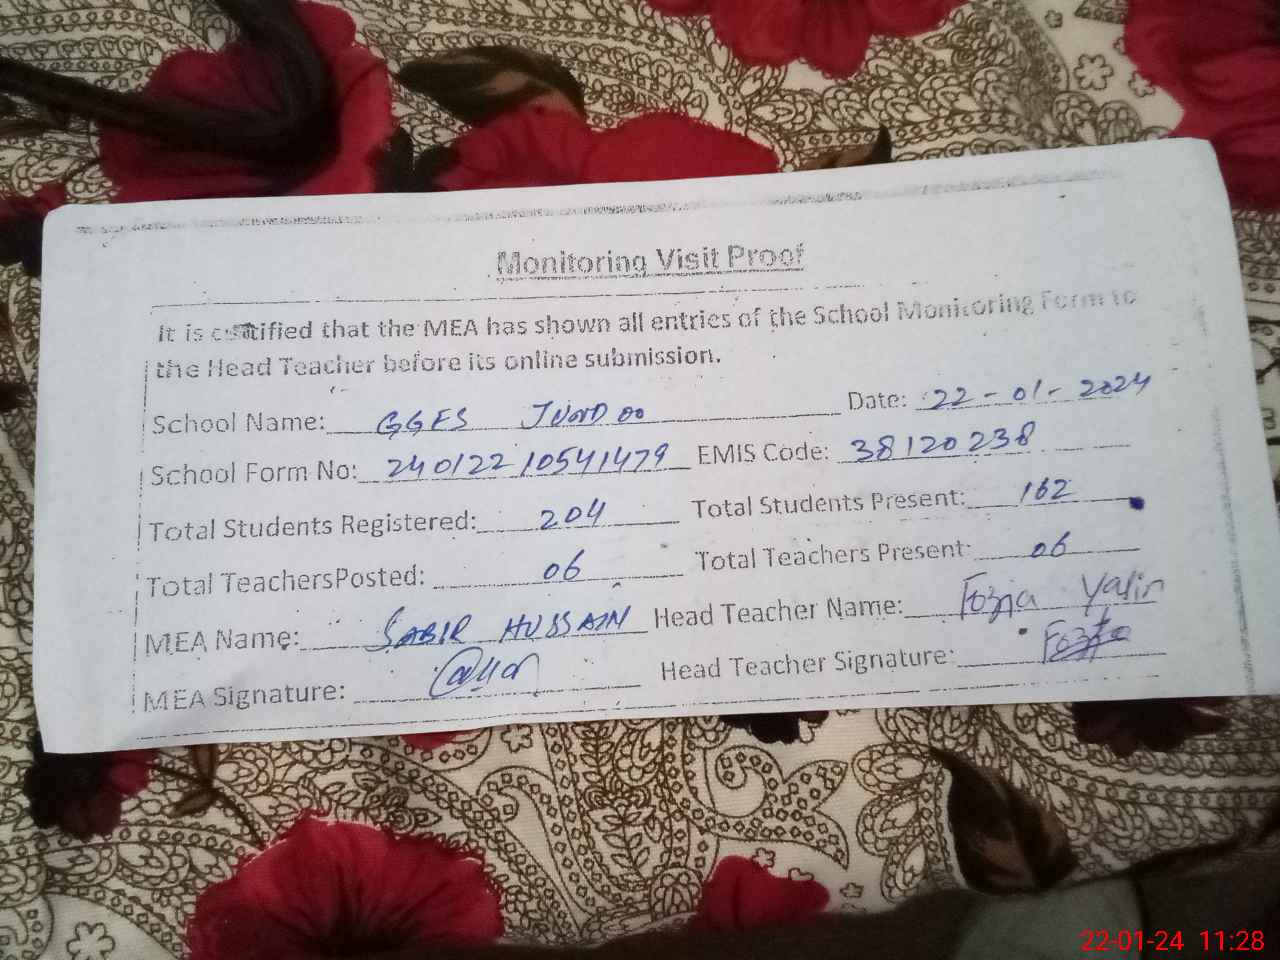 Monitoring Visit Proof
It is certified that the MEA has shown all entries of the School Monitoring Form to
the Head Teacher before its online submission.
School Name: GGES JUNDOO Date: 22-01-2024
School Form No: 24012210541479 EMIS Code: 38120238
Total Students Registered: 204 Total Students Present: 162
Total TeachersPosted: 06 Total Teachers Present: 06
MEA Name: SABIR HUSSAIN Head Teacher Name: Fozia Yasin
MEA Signature: Head Teacher Signature: Fozia
22-01-24 11:28